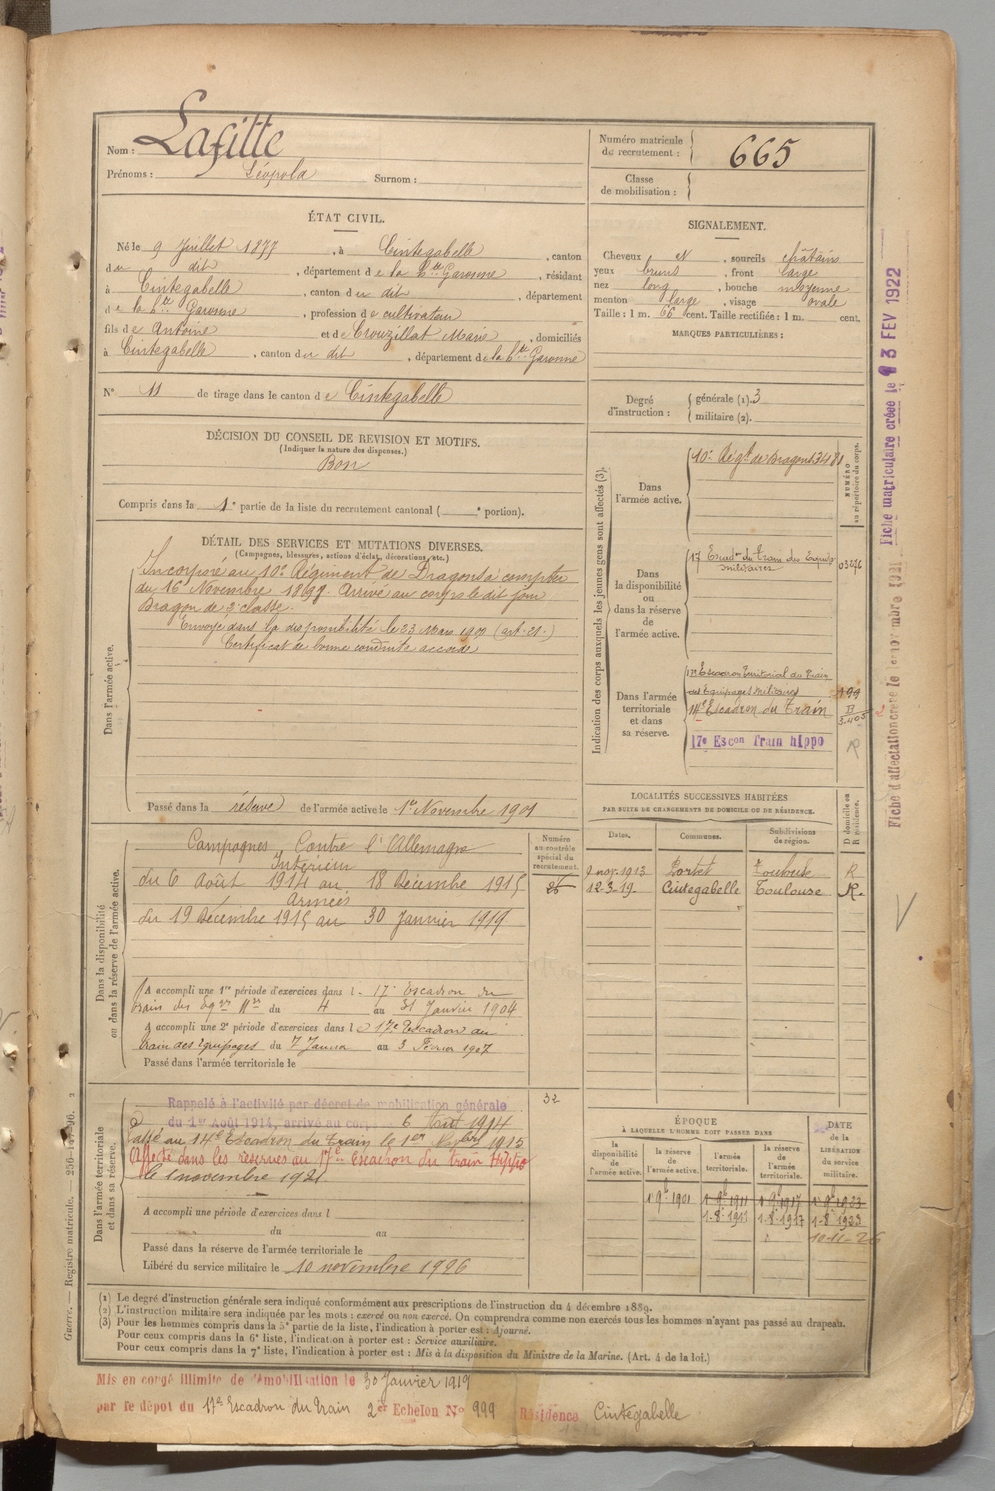 Nom : Lafitte
Prénoms : Léopold Surnom :
Numéro matricule du recrutement : 665
Classe de mobilisation :
ÉTAT CIVIL.
Né le 9 Juillet 1877, à Cintegabelle, canton
du dit, département de la Hte Garonne, résidant
à Cintegabelle, canton du dit, département
de la Hte Garonne, profession de cultivateur
fils de Antoine et de Crouzillat Marie, domiciliés
à Cintegabelle, canton du dit, département de la Hte Garonne
N° 11 de tirage dans le canton de Cintegabelle
SIGNALEMENT.
Cheveux N, sourcils châtains
yeux bruns, front large
nez long, bouche moyenne
menton large, visage ovale
Taille : 1 m. 66 cent. Taille rectifiée : 1 m. cent.
MARQUES PARTICULIÈRES :
Degré d'instruction : générale (1). 3
militaire (2).
DÉCISION DU CONSEIL DE REVISION ET MOTIFS.
(Indiquer la nature des dispenses.)
Bon
Compris dans la 1e partie de la liste du recrutement cantonal (e portion).
DÉTAIL DES SERVICES ET MUTATIONS DIVERSES.
(Campagnes, blessures, actions d'éclat, décorations, etc.)
Dans l'armée active.
Incorporé au 10e Régiment de Dragons à compter
du 16 Novembre 1898. Arrivé au corps le dit jour
Dragon de 2e classe.
Envoyé dans la disponibilité le 23 Mars 1900 (art. 21.)
Certificat de bonne conduite accordé
Passé dans la réserve de l'armée active le 1er Novembre 1901
Indication des corps auxquels les jeunes gens sont affectés (3).
NUMÉRO au répertoire du corps.
Dans l'armée active.
10e Régt de Dragons 3481
Dans la disponibilité ou dans la réserve de l'armée active.
17 Escadron du train des Equip
militaires 03276
Dans l'armée territoriale et dans sa réserve.
17e Escadron Territorial du Train
des Equipages Militaires 199
14e Escadron du Train B
17e Escon Train hIppo R
LOCALITÉS SUCCESSIVES HABITÉES
PAR SUITE DE CHANGEMENTS DE DOMICILE OU DE RÉSIDENCE.
Dates. Communes. Subdivisions de région. D domicile ou R résidence.
9 nov. 1913 Portet Toulouse R
12.3.19. Cintegabelle Toulouse R.
Dans la disponibilité ou dans la réserve de l'armée active.
Numéro au contrôle spécial du recrutement.
Campagnes Contre l'Allemagne
Intérieur
du 6 Août 1914 au 18 Décembre 1915
Armées
du 19 Décembre 1915 au 30 Janvier 1919
A accompli une 1re période d'exercices dans l 17e Escadron du
train des Eqges Mres du 4 au 31 Janvier 1904
A accompli une 2e période d'exercices dans l e 17e Escadron du
train des Equipages du 7 Janvier au 3 Février 1907
Passé dans l'armée territoriale le
Dans l'armée territoriale et dans sa réserve.
32
Rappelé à l'activité par décret de mobilisation générale
du 1er Août 1914, arrivé au corps 6 Août 1914
Passé au 14e Escadron du train le 1er 1915
Affecté dans les réserves au 17e Escadron du train Hippo
le 1 novembre 1921
A accompli une période d'exercices dans l
du au
Passé dans la réserve de l'armée territoriale le
Libéré du service militaire le 10 novembre 1926
ÉPOQUE
À LAQUELLE L'HOMME DOIT PASSER DANS
la disponibilité de l'armée active. la réserve de l'armée active. l'armée territoriale. la réserve de l'armée territoriale. DATE de la LIBÉRATION du service militaire.
1er 9b 1901 1er 9b 1911 1er 9b 1917 1er 9b 1923
1-8b 1911 1-8b 1917 1-8b 1923
10-11-26
(1) Le degré d'instruction générale sera indiqué conformément aux prescriptions de l'instruction du 4 décembre 1889.
(2) L'instruction militaire sera indiquée par les mots : exercé ou non exercé. On comprendra comme non exercés tous les hommes n'ayant pas passé au drapeau.
(3) Pour les hommes compris dans la 5e partie de la liste, l'indication à porter est : Ajourné.
Pour ceux compris dans la 6e liste, l'indication à porter est : Service auxiliaire.
Pour ceux compris dans la 7e liste, l'indication à porter est : Mis à la disposition du Ministre de la Marine. (Art. 4 de la loi.)
Mis en congé illimité de démobilisation le 30 Janvier 1919
par le dépôt du 17e Escadron du Train 2er Echelon N° 999 Résidence Cintegabelle
Guerre. — Registre matricule. —
Fiche matriculaire créée le 13 FEV 1922
Fiche d'affectation créée le 1er novembre 1921